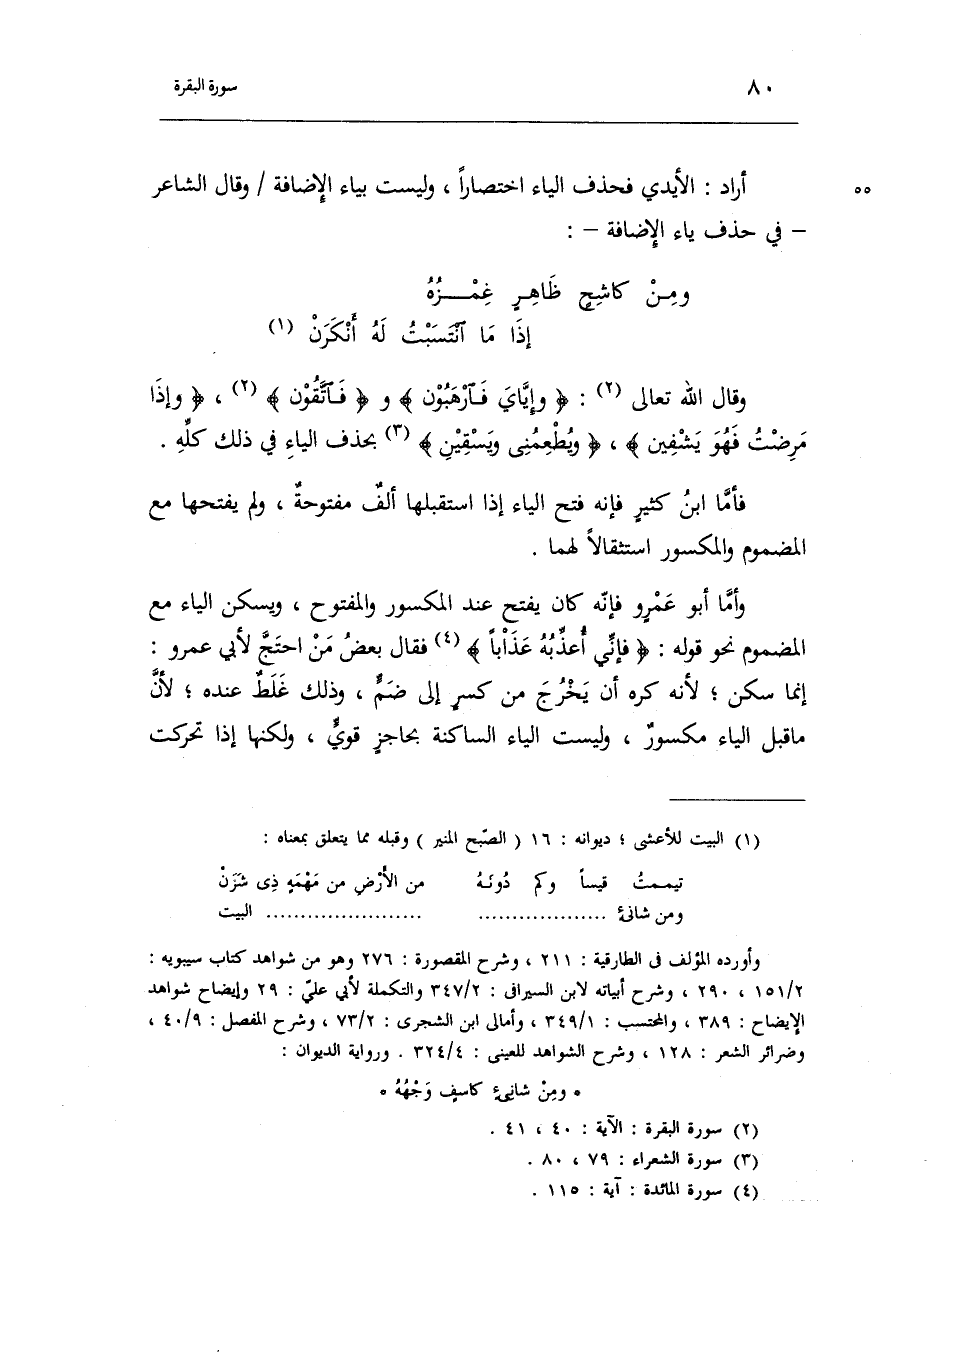 ٨٠ سورة البقرة
٥٥ أراد : الأيدي فحذف الياء اختصاراً ، وليست بياء الإضافة / وقال الشاعر
– في حذف ياء الإضافة – :
ومِنْ كاشِحٍ ظَاهِرٍ غِمْــزُهُ
إذَا مَا ٱنْتَسَبْتُ لَهُ أَنْكَرَنْ (١)
وقال الله تعالى (٢) : ﴿ وإيَّايَ فَٱرْهَبُوْن ﴾ و ﴿ فَٱتَّقُوْن ﴾ (٢) ، ﴿ وإذَا
مَرِضْتُ فَهُوَ يَشْفِين ﴾ ، ﴿ ويُطْعِمُنِى ويَسْقِيْنِ ﴾ (٣) بحذف الياءِ في ذلك كلِّهِ .
فأمَّا ابنُ كثيرٍ فإنه فتح الياء إذا استقبلها ألفٌ مفتوحةٌ ، ولم يفتحها مع
المضموم والمكسور استثقالاً لهما .
وأمَّا أبو عَمْرٍو فإنّه كان يفتح عند المكسور والمفتوح ، ويسكن الياء مع
المضموم نحو قوله : ﴿ فإنِّي أُعذِّبُهُ عَذَاْباً ﴾ (٤) فقال بعضُ مَنْ احتَجَّ لأبي عمرو :
إنما سكن ؛ لأنه كره أن يَخْرُجَ من كسرٍ إلى ضَمٍّ ، وذلك غَلَطٌ عنده ؛ لأنَّ
ماقبل الياء مكسورٌ ، وليست الياء الساكنة بحاجزٍ قويٍّ ، ولكنها إذا تحركت
(١) البيت للأعشى ؛ ديوانه : ١٦ ( الصّبح المنير ) وقبله مما يتعلق بمعناه :
تيممتُ قيساً وكم دُونَهُ من الأَرْضِ من مَهْمَهٍ ذِى شَزَنْ
ومن شانئ ................... ....................... البيت
وأورده المؤلف فى الطارقية : ٢١١ ، وشرح المقصورة : ٢٧٦ وهو من شواهد كتاب سيبويه :
١٥١/٢ ، ٢٩٠ ، وشرح أبياته لابن السيرافى : ٣٤٧/٢ والتكملة لأبي عليّ : ٢٩ وإيضاح شواهد
الإيضاح : ٣٨٩ ، والمحتسب : ٣٤٩/١ ، وأمالى ابن الشجرى : ٧٣/٢ ، وشرح المفصل : ٤٠/٩ ،
وضرائر الشعر : ١٢٨ ، وشرح الشواهد للعينى : ٣٢٤/٤ . ورواية الديوان :
* ومِنْ شانِئٍ كاسِفٍ وَجْهُهُ *
(٢) سورة البقرة : الآية : ٤٠ ، ٤١ .
(٣) سورة الشعراء : ٧٩ ، ٨٠ .
(٤) سورة المائدة : آية : ١١٥ .